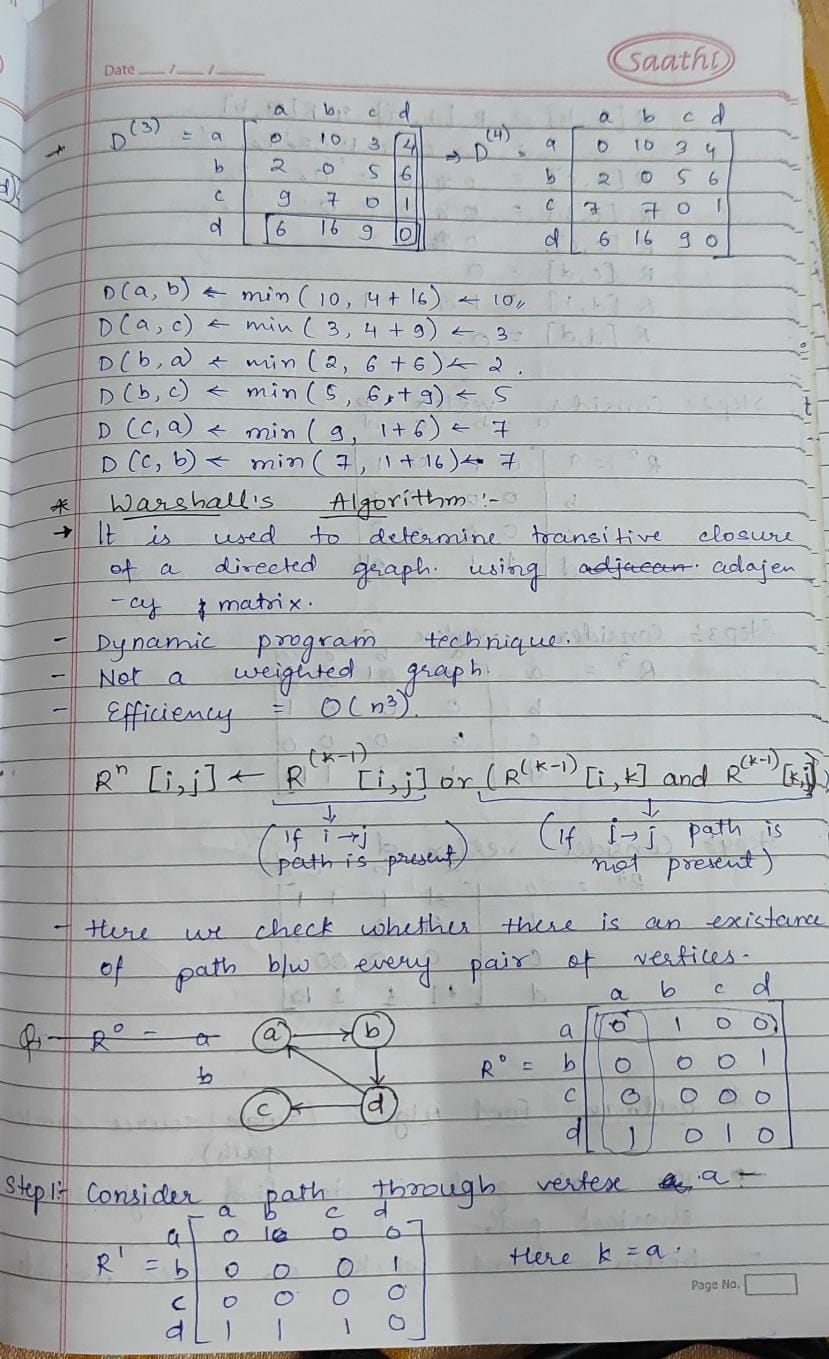 Date __/__/____
Saathi
a b c d
a b c d
* D(3) = a 0 10 3 4 ⇒ D(4) = a 0 10 3 4
b 2 0 5 6 b 2 0 5 6
c 9 7 0 1 c 7 7 0 1
d 6 16 9 0 d 6 16 9 0
D(a, b) ← min(10, 4+16) ← 10,,
D(a, c) ← min(3, 4+9) ← 3
D(b, a) ← min(2, 6+6) ← 2.
D(b, c) ← min(5, 6+9) ← 5
D(c, a) ← min(9, 1+6) ← 7
D(c, b) ← min(7, 1+16) ← 7
* Warshall's Algorithm :-
→ It is used to determine transitive closure
of a directed graph. using adjacan. adajen
-cy matrix.
- Dynamic program technique.
- Not a weighted graph.
- Efficiency = O(n3).
Rn [i,j] ← R(k-1) [i,j] or (R(k-1) [i,k] and R(k-1) [k,j])
(If i→j (If i→j path is
path is present) not present)
- Here we check whether there is an existance
of path b/w every pair of vertices.
a b c d
Q. R0 = a a b a 0 1 0 0
b R0 = b 0 0 0 1
c d c 0 0 0 0
d 1 0 1 0
Step 1:- Consider path through vertex a -
a b c d
a 0 1 0 0
R1 = b 0 0 0 1 Here k = a.
c 0 0 0 0
d 1 1 1 0
Page No.